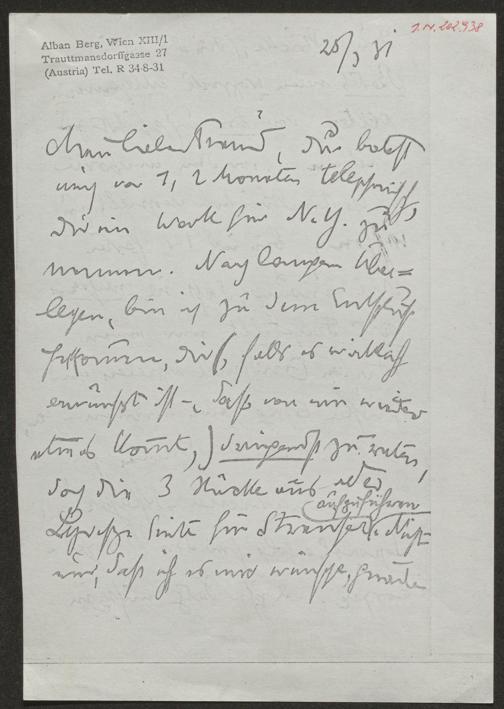 Alban Berg, Wien XIII/1
Trauttmansdorffgasse 27
(Austria) Tel. R 34-8-31
I.N. 202.938
25/3 31
Mein lieber Freund, Du batest
mich vor 1, 2 Monaten telephonisch,
Dir ein Werk für N.Y. zu
nennen. Nach langem Über=
legen, bin ich zu dem Entschluß
gekommen, Dir, falls es wirklich
erwünscht ist –, daß von mir wieder
etwas kommt, dringendst zu raten,
doch die 3 Stücke aus der
aufzuführen
Lyrischen Suite für Streichorch. Nicht
nur, daß ich es mir wünsche, gerade